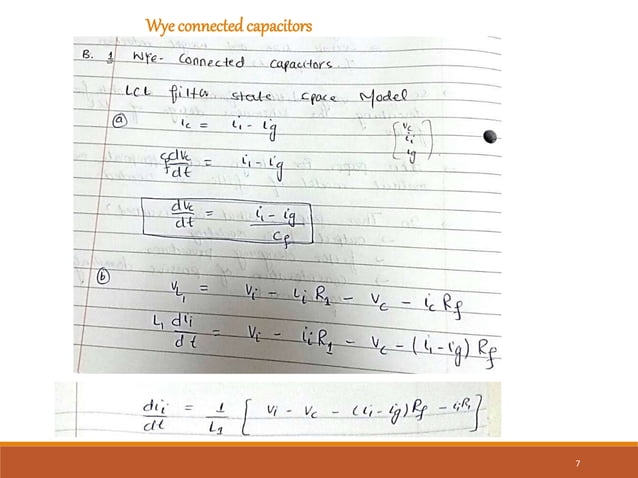 Wye connected capacitors
B. 1 Wye-Connected capacitors.
LCL filter state space Model
(a) ic = ii - ig [vc ii ig]
Cf dvc/dt = ii - ig
dvc/dt = (ii - ig)/Cf
(b) vL1 = vi - ii R1 - vc - ic Rf
L1 dii/dt = vi - ii R1 - vc - (ii - ig) Rf
dii/dt = 1/L1 [ vi - vc - (ii - ig) Rf - ii R1 ]
7